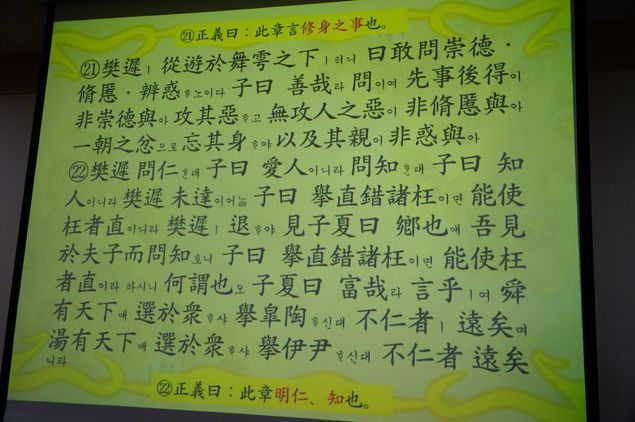 ㉑正義曰：此章言修身之事也。
㉑樊遲ㅣ 從遊於舞雩之下ㅣ러니 曰敢問崇德·
脩慝·辨惑ᄒᆞ노이다 子曰 善哉라 問이여 先事後得이
非崇德與아 攻其惡ᄒᆞ고 無攻人之惡이 非脩慝與아
一朝之忿으로 忘其身ᄒᆞ야 以及其親이 非惑與아
㉒樊遲 問仁ᄒᆞᆫ대 子曰 愛人이니라 問知ᄒᆞᆫ대 子曰 知
人이니라 樊遲 未達이어늘 子曰 擧直錯諸枉이면 能使
枉者直이니라 樊遲ㅣ 退ᄒᆞ야 見子夏曰 鄕也애 吾見
於夫子而問知호니 子曰 擧直錯諸枉이면 能使枉
者直이라 하시니 何謂也오 子夏曰 富哉라 言乎ㅣ여 舜
有天下애 選於衆ᄒᆞ샤 擧皐陶ᄒᆞ신대 不仁者ㅣ 遠矣며
湯有天下애 選於衆ᄒᆞ샤 擧伊尹ᄒᆞ신대 不仁者 遠矣
니라
㉒正義曰：此章明仁、知也。